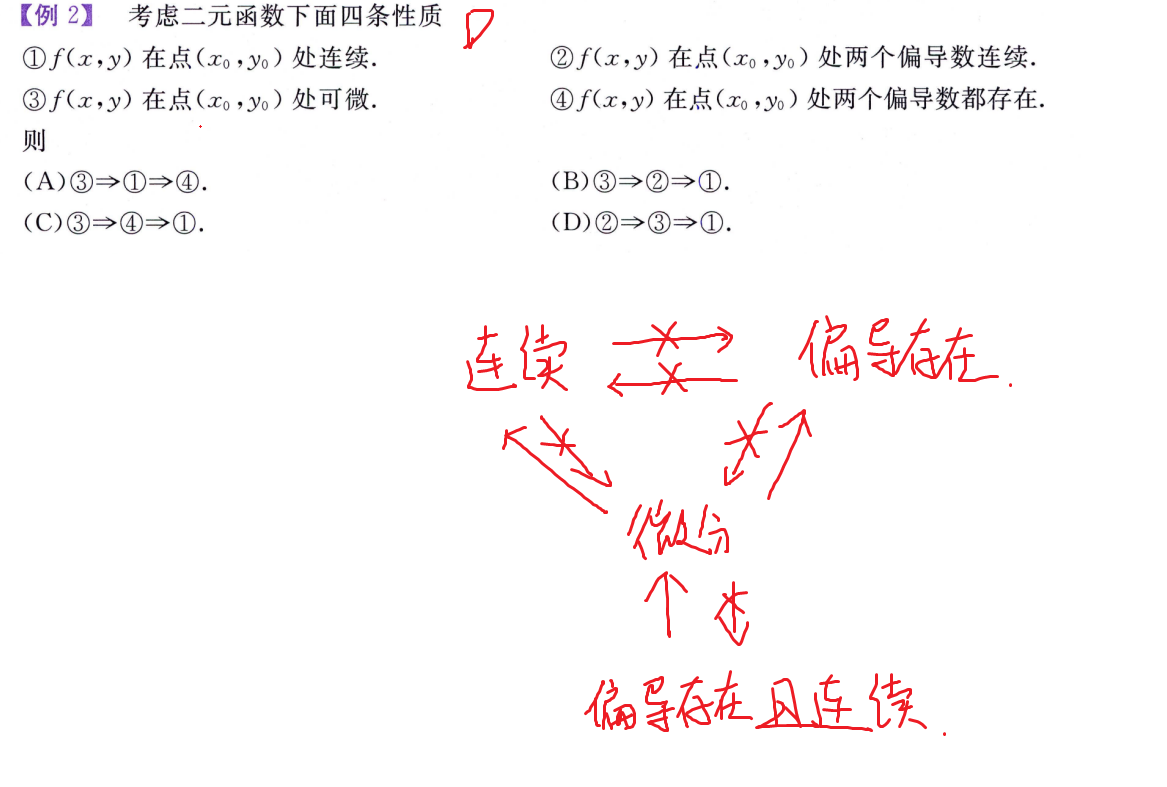 【例 2】 考虑二元函数下面四条性质 D
①f(x,y) 在点(x₀,y₀) 处连续. ②f(x,y) 在点(x₀,y₀) 处两个偏导数连续.
③f(x,y) 在点(x₀,y₀) 处可微. ④f(x,y) 在点(x₀,y₀) 处两个偏导数都存在.
则
(A)③⇒①⇒④. (B)③⇒②⇒①.
(C)③⇒④⇒①. (D)②⇒③⇒①.
连续 偏导存在.
微分
偏导存在且连续.